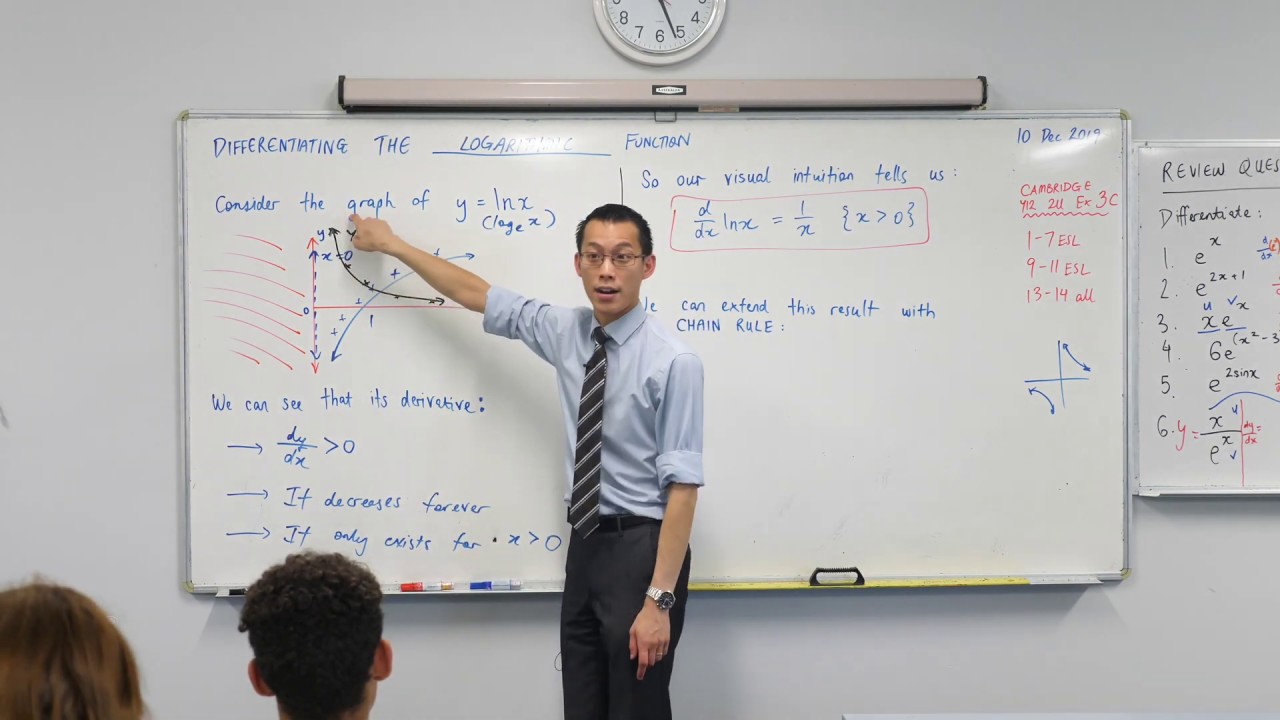 DIFFERENTIATING THE LOGARITHMIC FUNCTION
10 Dec 2019
Consider the graph of y = ln x
(log_e x)
y
x = 0
0
1
We can see that its derivative:
→ dy/dx > 0
→ It decreases forever
→ It only exists for x > 0
So our visual intuition tells us:
d/dx ln x = 1/x {x > 0}
can extend this result with
CHAIN RULE:
CAMBRIDGE
Y12 2U Ex 3C
1-7 ESL
9-11 ESL
13-14 all
REVIEW QUES
Differentiate:
1. e^x
2. e^(2x+1)
u v
3. xe^x
4. 6e^(x²-3
5. e^(2sinx
6. y = x/e^x dy/dx =
u
v
8 7 6 5 4